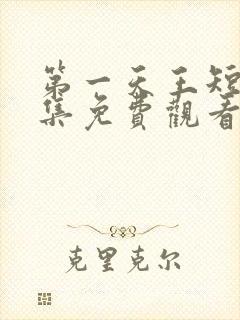 第一天王短
集免費觀看
克里克尔